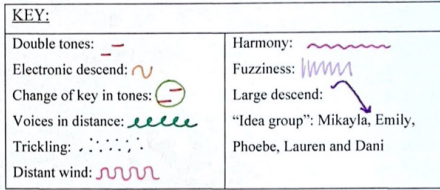 KEY:
Double tones:
Electronic descend:
Change of key in tones:
Voices in distance:
Trickling:
Distant wind:
Harmony:
Fuzziness:
Large descend:
“Idea group”: Mikayla, Emily,
Phoebe, Lauren and Dani